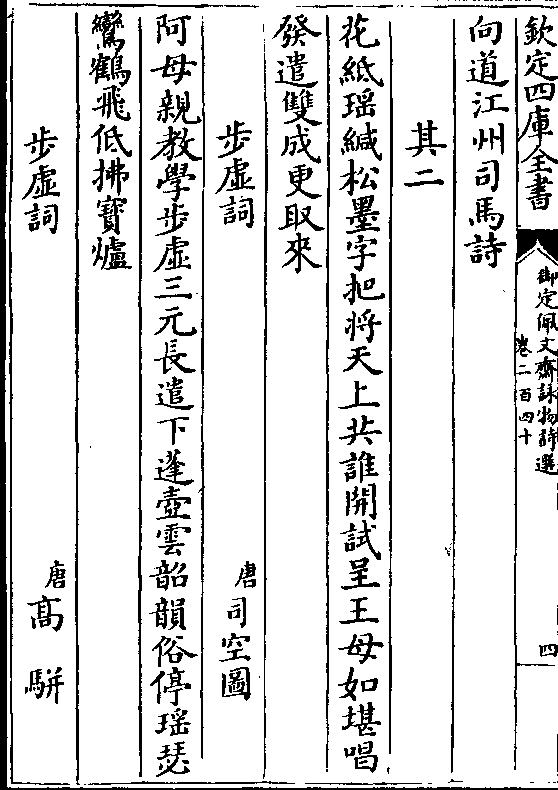 欽定四庫全書
御定佩文齋詠物詩選
卷二百四十
四
向道江州司馬詩
其二
花紙瑶緘松墨字把將天上共誰開試呈王母如堪唱
發遣雙成更取來
步虛詞
唐司空圖
阿母親教學步虛三元長遣下蓬壺雲韶韻俗停瑶瑟
鸞鶴飛低拂寶爐
步虛詞
唐高駢